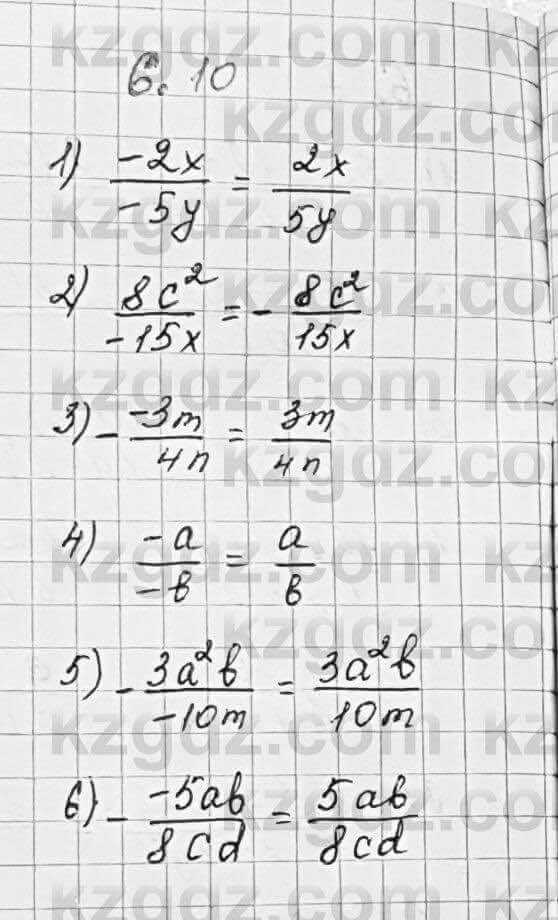 6.10
1) -2x/-5y = 2x/5y
2) 8c²/-15x = - 8c²/15x
3) - -3m/4n = 3m/4n
4) -a/-b = a/b
5) - 3a²b/-10m = 3a²b/10m
6) - -5ab/8cd = 5ab/8cd
kzgdz.com